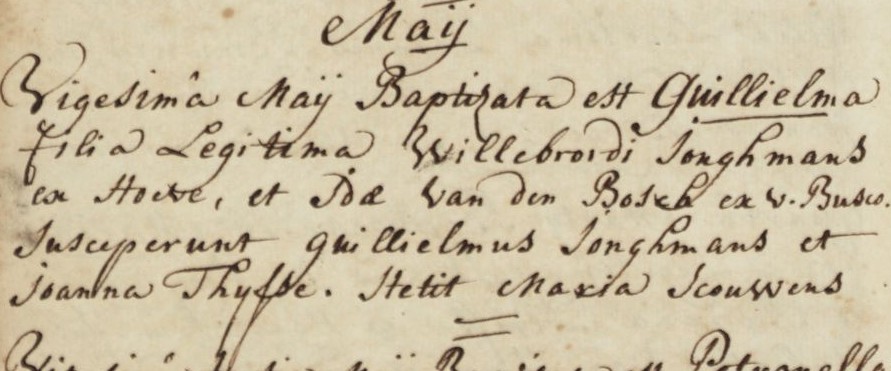 Maÿ
Vigesimâ Maÿ Baptizata est Guillielma
filia Legitima Willebrordi Jonghmans
ex Hoeve, et Idæ Van den Bosch ex v. Busco.
Susceperunt Guillielmus Jonghmans et
Joanna Thysse. Stetit Maria Scouwens